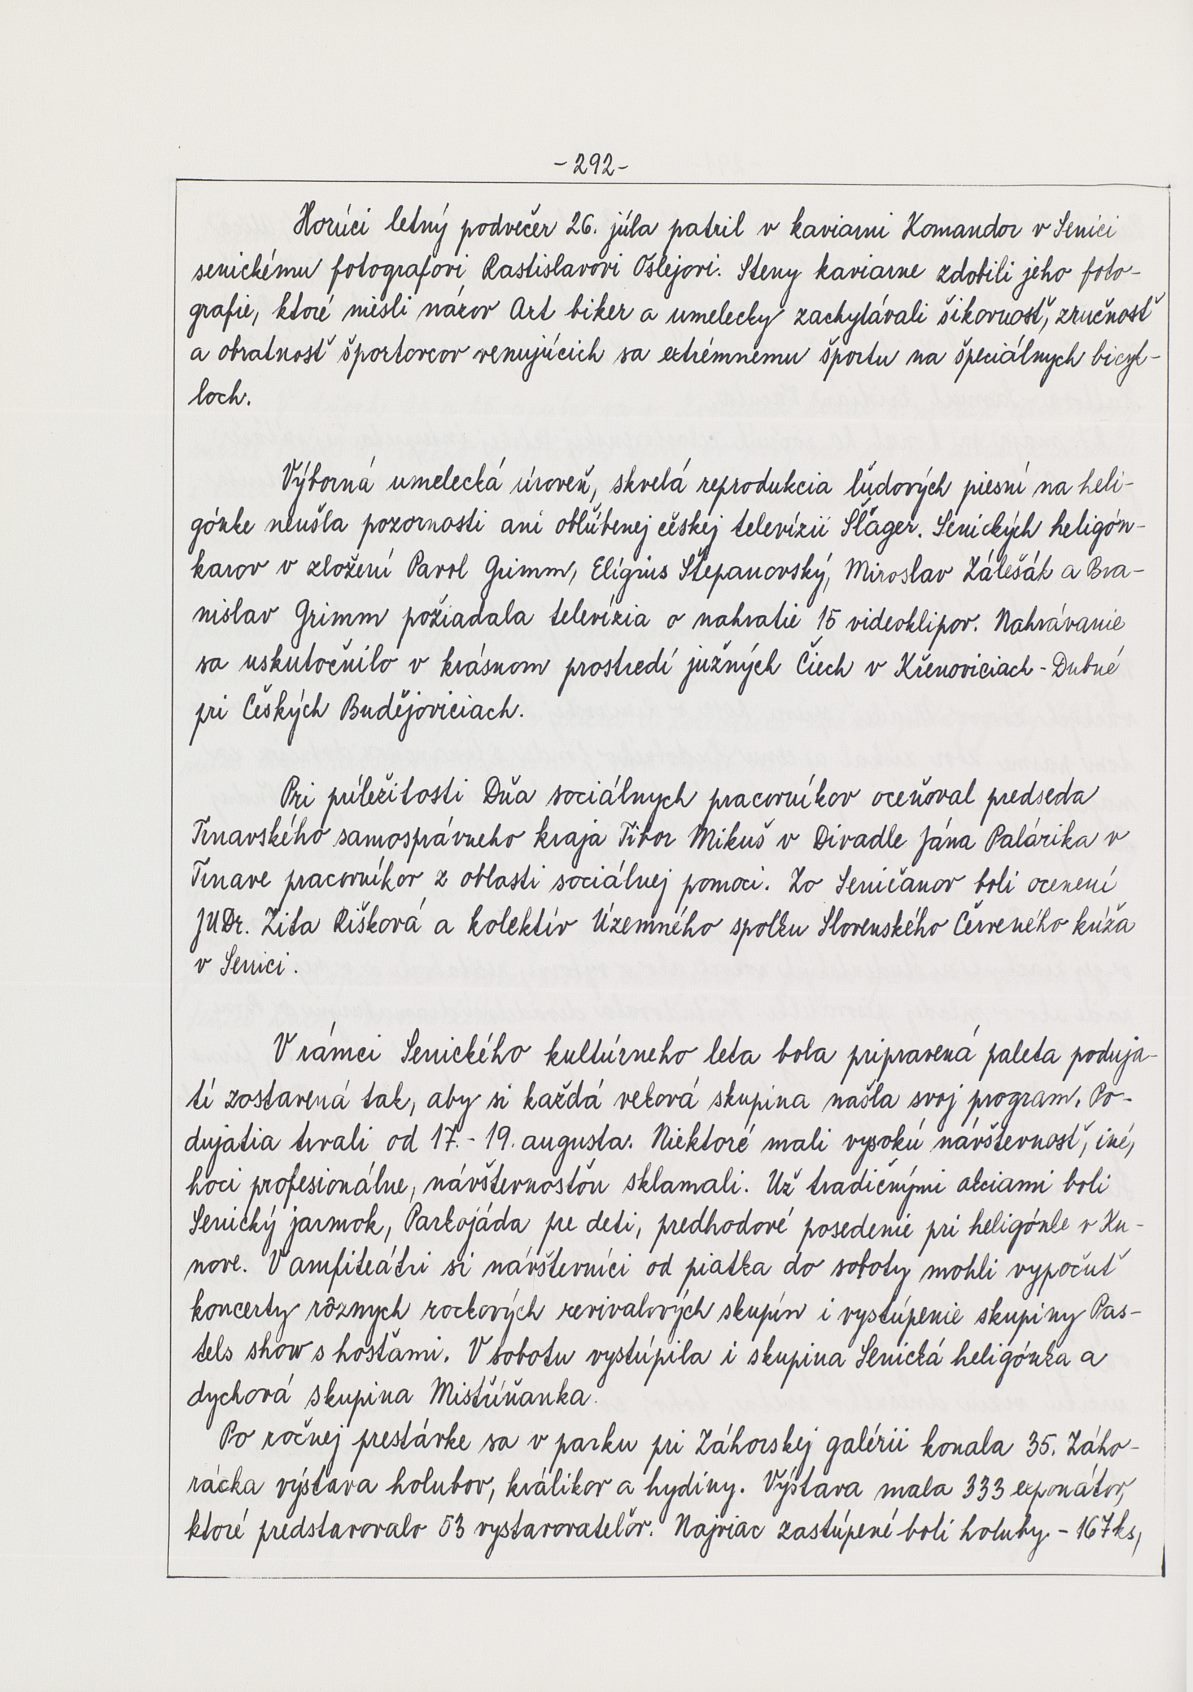 -292-
Horúci letný podvečer 26. júla patril v kaviarni Komandor v Senici
senickému fotografovi Rastislavovi Oslejovi. Steny kaviarne zdobili jeho foto-
grafie, ktoré niesli názov Art biker a umelecky zachytávali šikovnosť, zručnosť
a obratnosť športovcov venujúcich sa extrémnemu športu na špeciálnych bicyk-
loch.
Výborná umelecká úroveň, skvelá reprodukcia ľudových piesní na heli-
gónke neušla pozornosti ani obľúbenej českej televízii Šláger. Senických heligón-
karov v zložení Pavol Grimm, Elígius Štepanovský, Miroslav Zálešák a Bra-
nislav Grimm požiadala televízia o nahratie 15 videoklipov. Nahrávanie
sa uskutočnilo v krásnom prostredí južných Čiech v Křenoviciach - Dubné
pri Českých Budějoviciach.
Pri príležitosti Dňa sociálnych pracovníkov oceňoval predseda
Trnavského samosprávneho kraja Tibor Mikuš v Divadle Jána Palárika v
Trnave pracovníkov z oblasti sociálnej pomoci. Zo Seničanov boli ocenení
JUDr. Zita Rišková a kolektív Územného spolku Slovenského Červeného kríža
v Senici.
V rámci Senického kultúrneho leta bola pripravená paleta poduja-
tí zostavená tak, aby si každá veková skupina našla svoj program. Po-
dujatia trvali od 17. - 19. augusta. Niektoré mali vysokú návštevnosť, iné,
hoci profesionálne, návštevnosťou sklamali. Už tradičnými akciami boli
Senický jarmok, Parkojáda pre deti, predhodové posedenie pri heligónke v Ku-
nove. V amfiteátri si návštevníci od piatka do soboty mohli vypočuť
koncerty rôznych rockových revivalových skupín i vystúpenie skupiny Pas-
tels show s hosťami. V sobotu vystúpila i skupina Senická heligónka a
dychová skupina Mistříňanka.
Po ročnej prestávke sa v parku pri Záhorskej galérii konala 35. Záho-
rácka výstava holubov, králikov a hydiny. Výstava mala 333 exponátov,
ktoré predstavovalo 53 vystavovateľov. Najviac zastúpené boli holuby - 167 ks,